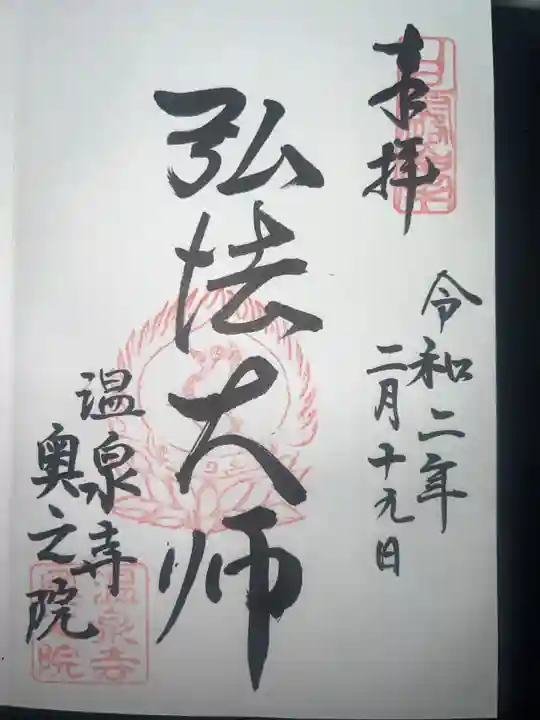 奉拝
令和二年
二月十九日
弘法大师
温泉寺
奥之院
温泉寺
奥之院